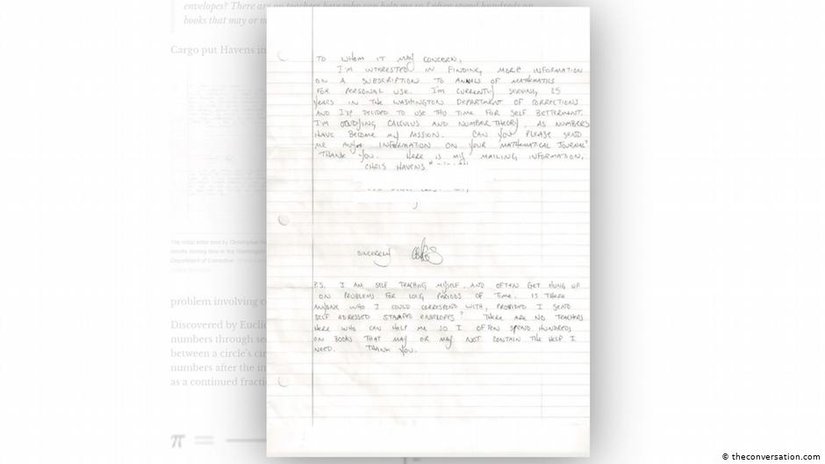 envelopes? There are no teachers here who can help me so I often spend hundreds on
books that may or m
Cargo put Havens in
TO WHOM IT MAY CONCERN,
I'M INTERESTED IN FINDING MORE INFORMATION
ON A SUBSCRIPTION TO ANNALS OF MATHEMATICS
FOR PERSONAL USE. I'M CURRENTLY SERVING 25
YEARS IN THE WASHINGTON DEPARTMENT OF CORRECTIONS
AND I'VE DECIDED TO USE THIS TIME FOR SELF BETTERMENT.
I'M STUDYING CALCULUS AND NUMBER THEORY, AS NUMBERS
HAVE BECOME MY PASSION. CAN YOU PLEASE SEND
ME ANY INFORMATION ON YOUR MATHEMATICAL JOURNAL?
THANK YOU. HERE IS MY MAILING INFORMATION,
CHRIS HAVENS
SINCERELY
P.S. I AM SELF TEACHING MYSELF, AND OFTEN GET HUNG UP
ON PROBLEMS FOR LONG PERIODS OF TIME. IS THERE
ANYONE WHO I COULD CORRESPOND WITH, PROVIDED I SEND
SELF ADRESSED STAMPED ENVELOPES? THERE ARE NO TEACHERS
HERE WHO CAN HELP ME SO I OFTEN SPEND HUNDREDS
ON BOOKS THAT MAY OR MAY NOT CONTAIN THE HELP I
NEED. THANK YOU.
problem involving c
Discovered by Euclid
numbers through se
between a circle's cir
numbers after the in
as a continued fractio
π =
© theconversation.com